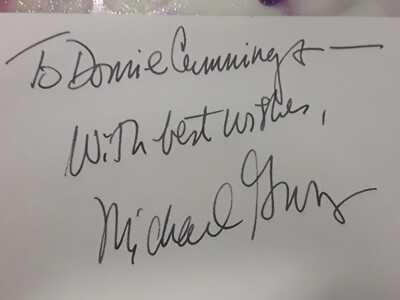 To Donnie Cummings —
With best wishes,
Michael